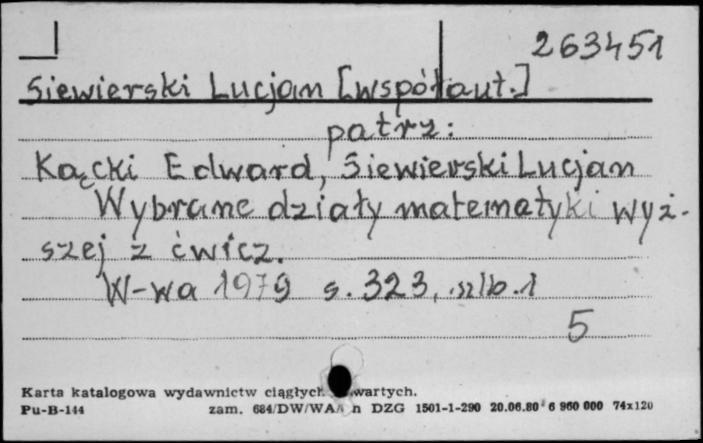 263451
Siewierski Lucjan [współaut.]
patrz:
Kącki Edward, Siewierski Lucjan
Wybrane działy matematyki wyż-
szej z ćwicz.
W-wa 1979 s. 323, nlb. 1
5
Karta katalogowa wydawnictw ciągłych wartych.
Pu-B-144 zam. 684/DW/WA/ n DZG 1501-1-290 20.06.80 6 960 000 74x120